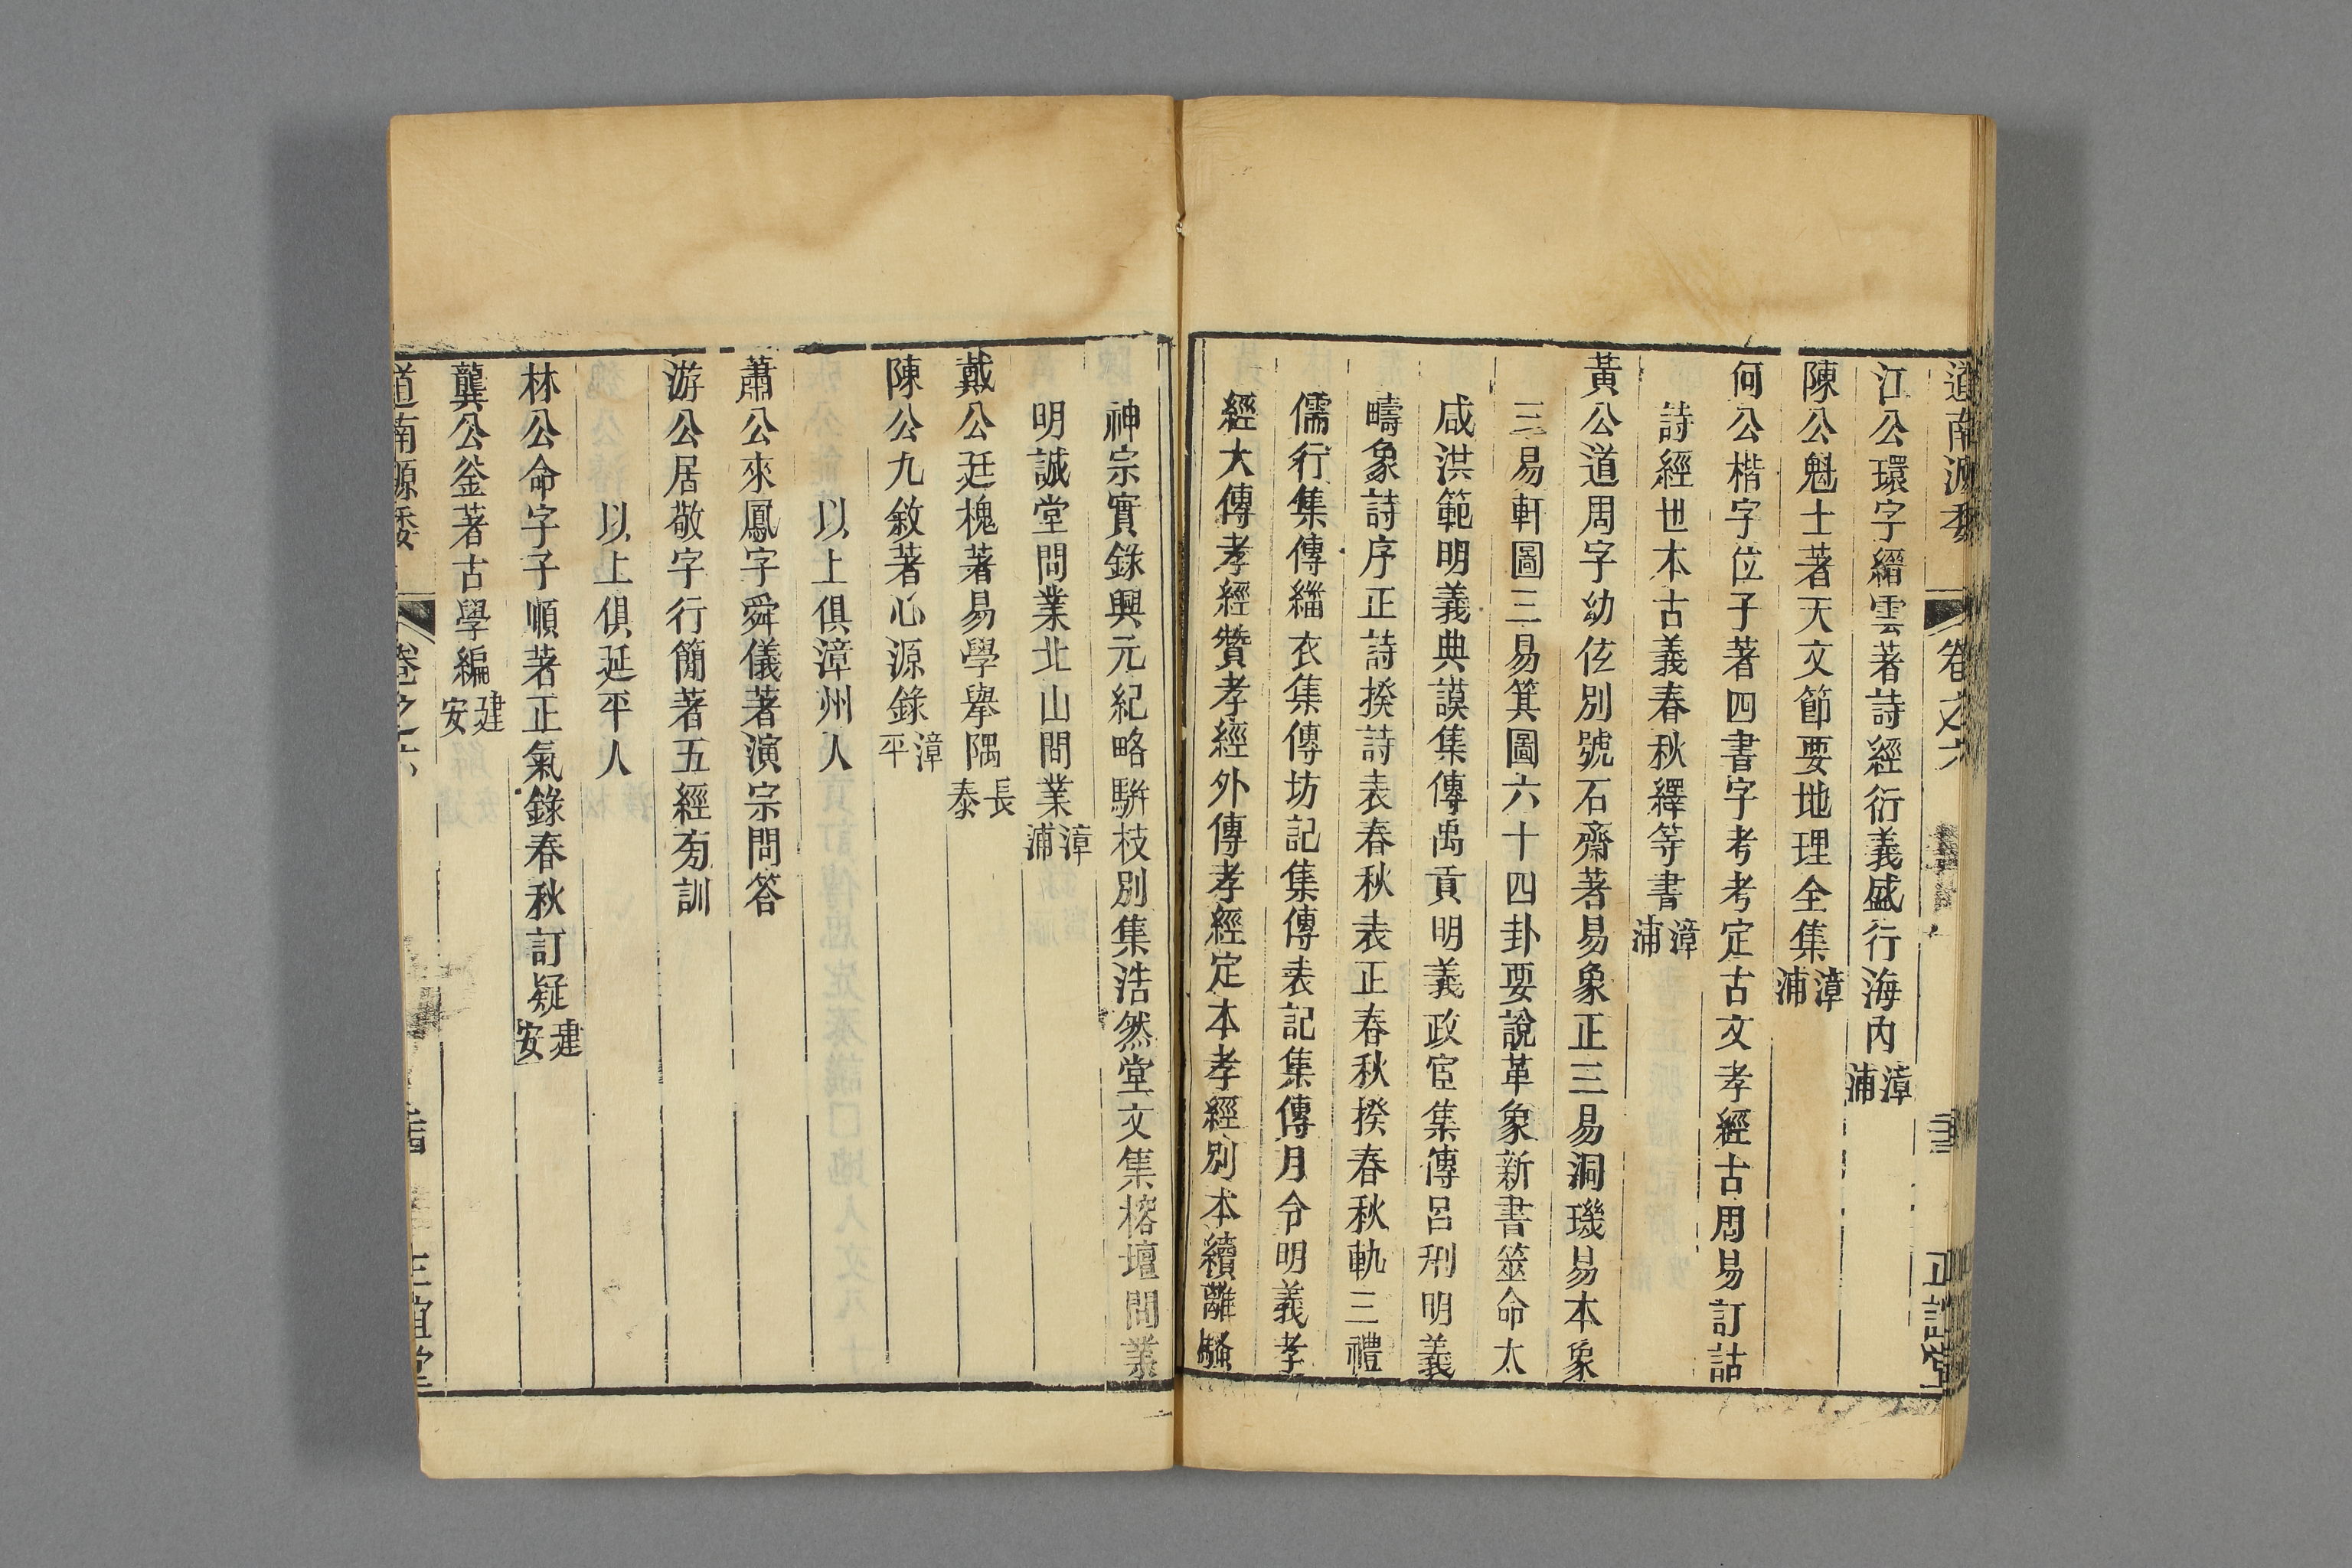 道南源委
卷之六
正誼堂
江公環字縉雲著詩經衍義盛行海內漳浦
陳公魁士著天文節要地理全集漳浦
何公楷字位子著四書字考考定古文孝經古周易訂詁
詩經世本古義春秋繹等書漳浦
黃公道周字幼伭別號石齋著易象正三易洞璣易本象
三易軒圖三易箕圖六十四卦要說革象新書筮命太
咸洪範明義典謨集傳禹貢明義政官集傳呂刑明義
疇象詩序正詩揆詩表春秋表正春秋揆春秋軌三禮
儒行集傳緇衣集傳坊記集傳表記集傳月令明義孝
經大傳孝經贊孝經外傳孝經定本孝經別本續離騷
神宗實錄興元紀略騈枝別集浩然堂文集榕壇問業
明誠堂問業北山問業漳浦
戴公廷槐著易學舉隅長泰
陳公九敘著心源錄漳平
以上俱漳州人
蕭公來鳳字舜儀著演宗問答
游公居敬字行簡著五經旁訓
以上俱延平人
林公命字子順著正氣錄春秋訂疑建安
龔公釜著古學編建安
道南源委
卷之六
正誼堂